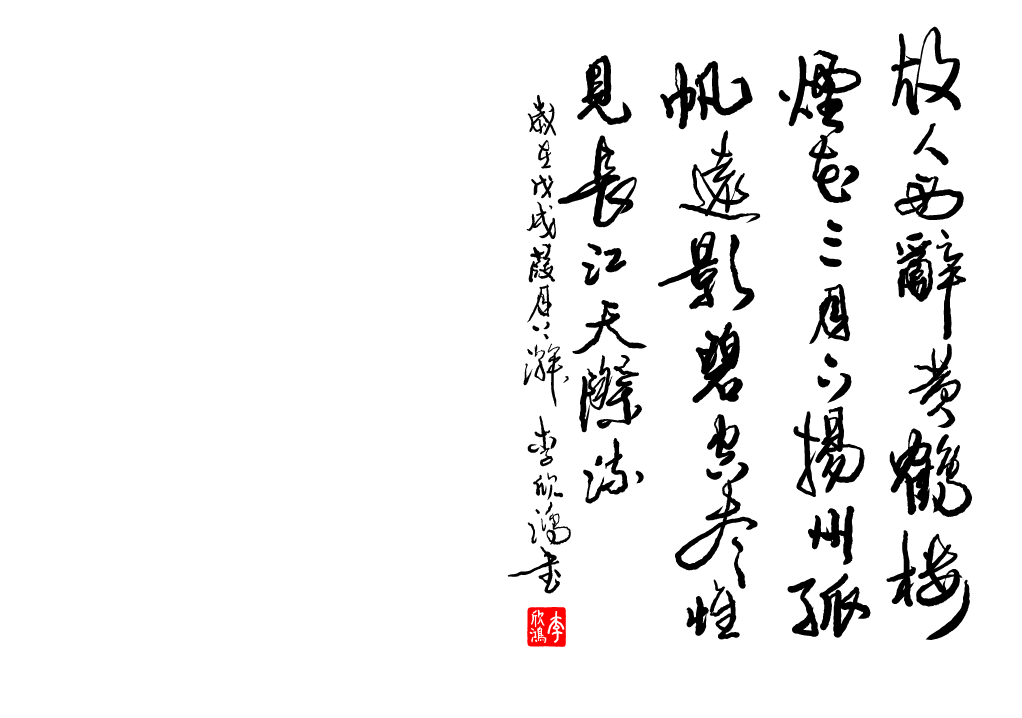 故人西辭黄鶴楼
煙花三月下揚州孤
帆遠影碧空尽惟
見長江天際流
歲在戊戌葭月上澣 李欣鴻书
李欣鴻